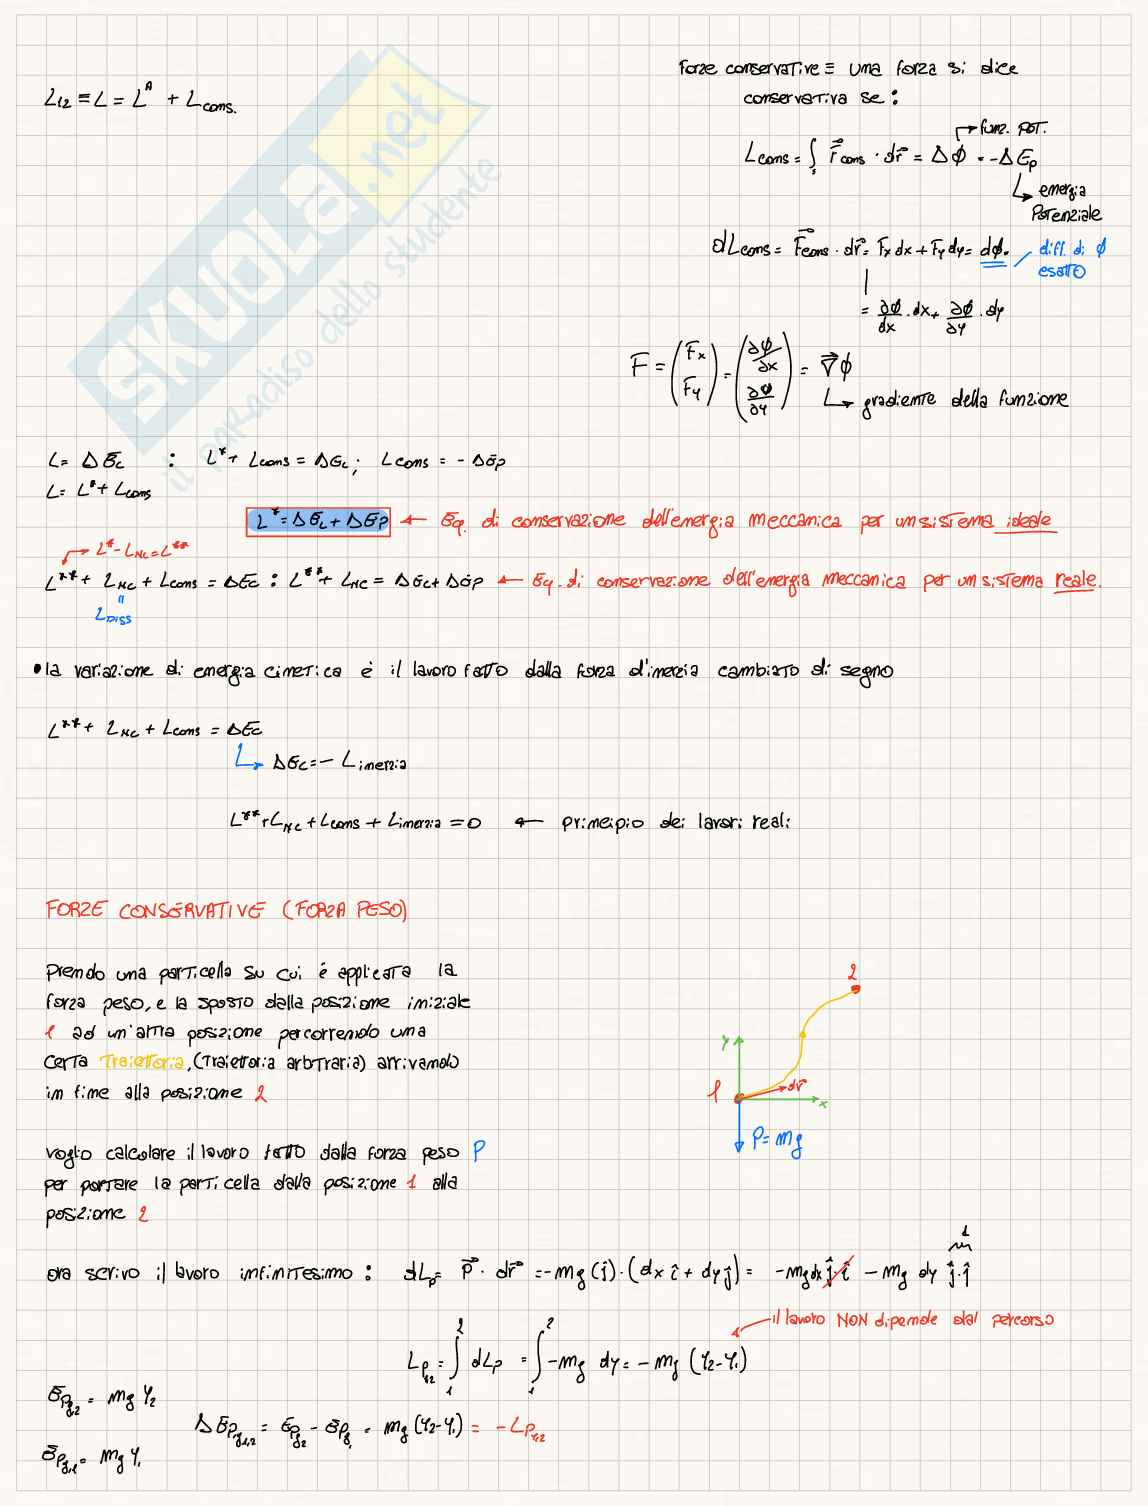 SKUOLA.net
il paradiso dello studente
L₁₂ ≡ L = L^A + Lcons.
Forze conservative ≡ una forza si dice
conservativa se:
funz. POT.
Lcons = ∫₁ F⃗cons · dr⃗ = Δϕ = -ΔEp
energia
Potenziale
dLcons = F⃗cons · dr⃗ = Fx dx + Fy dy = dϕ.
diff. di ϕ
esatto
= ∂ϕ/dx · dx + ∂ϕ/∂y · dy
F = (Fx Fy) = (∂ϕ/∂x ∂ϕ/∂y) = ∇⃗ϕ
gradiente della funzione
L = ΔEc : L* + Lcons = ΔEc; Lcons = -ΔEp
L = L* + Lcons
L* = ΔEc + ΔEp ← Eq. di conservazione dell'energia meccanica per un sistema ideale
L* - LNC = L**
L** + LNC + Lcons = ΔEc : L** + LNC = ΔEc + ΔEp ← Eq. di conservazione dell'energia meccanica per un sistema reale.
LDISS
• la variazione di energia cinetica è il lavoro fatto dalla forza d'inerzia cambiato di segno
L** + LNC + Lcons = ΔEc
ΔEc = - Linerzia
L** + LNC + Lcons + Linerzia = 0 ← principio dei lavori reali
FORZE CONSERVATIVE (FORZA PESO)
Prendo una particella su cui è applicata la
forza peso, e la sposto dalla posizione iniziale
1 ad un'altra posizione percorrendo una
certa traiettoria, (traiettoria arbitraria) arrivando
in fine alla posizione 2
2
y
1
dr⃗
x
P = mg
voglio calcolare il lavoro fatto dalla forza peso P
per portare la particella dalla posizione 1 alla
posizione 2
1
ora scrivo il lavoro infinitesimo : dLp = P⃗ · dr⃗ = -mg (ĵ) · (dx î + dy ĵ) = -mg dx ĵ·î - mg dy ĵ·ĵ
il lavoro NON dipende dal percorso
Lp₁,₂ = ∫₁² dLp = ∫₁² -mg dy = -mg (y₂-y₁)
Epg,2 = mg y₂
ΔEpg1,2 = Epg2 - Epg1 = mg (y₂-y₁) = -Lp1,2
Epg,1 = mg y₁